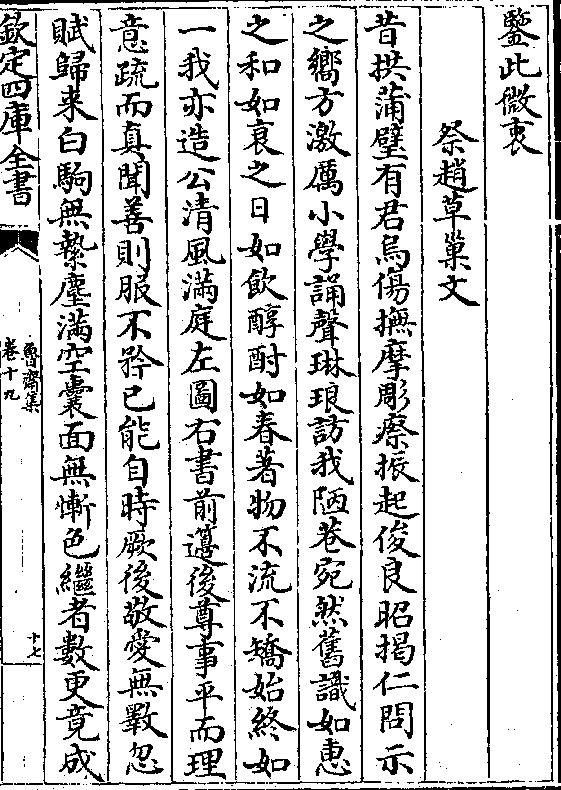 鑒此微衷
祭趙草巢文
昔拱蒲璧有君烏傷撫摩彫瘵振起俊良昭掲仁問示
之嚮方激厲小學誦聲琳琅訪我陋巷宛然舊識如惠
之和如衰之日如飲醇酎如春著物不流不矯始終如
一我亦造公清風滿庭左圖右書前籩後尊事平而理
意疏而真聞善則服不矜已能自時厥後敬愛無斁忽
賦歸来白駒無縶塵滿空囊面無慚色繼者數更竟成
欽定四庫全書
魯齋集
卷十九
十七